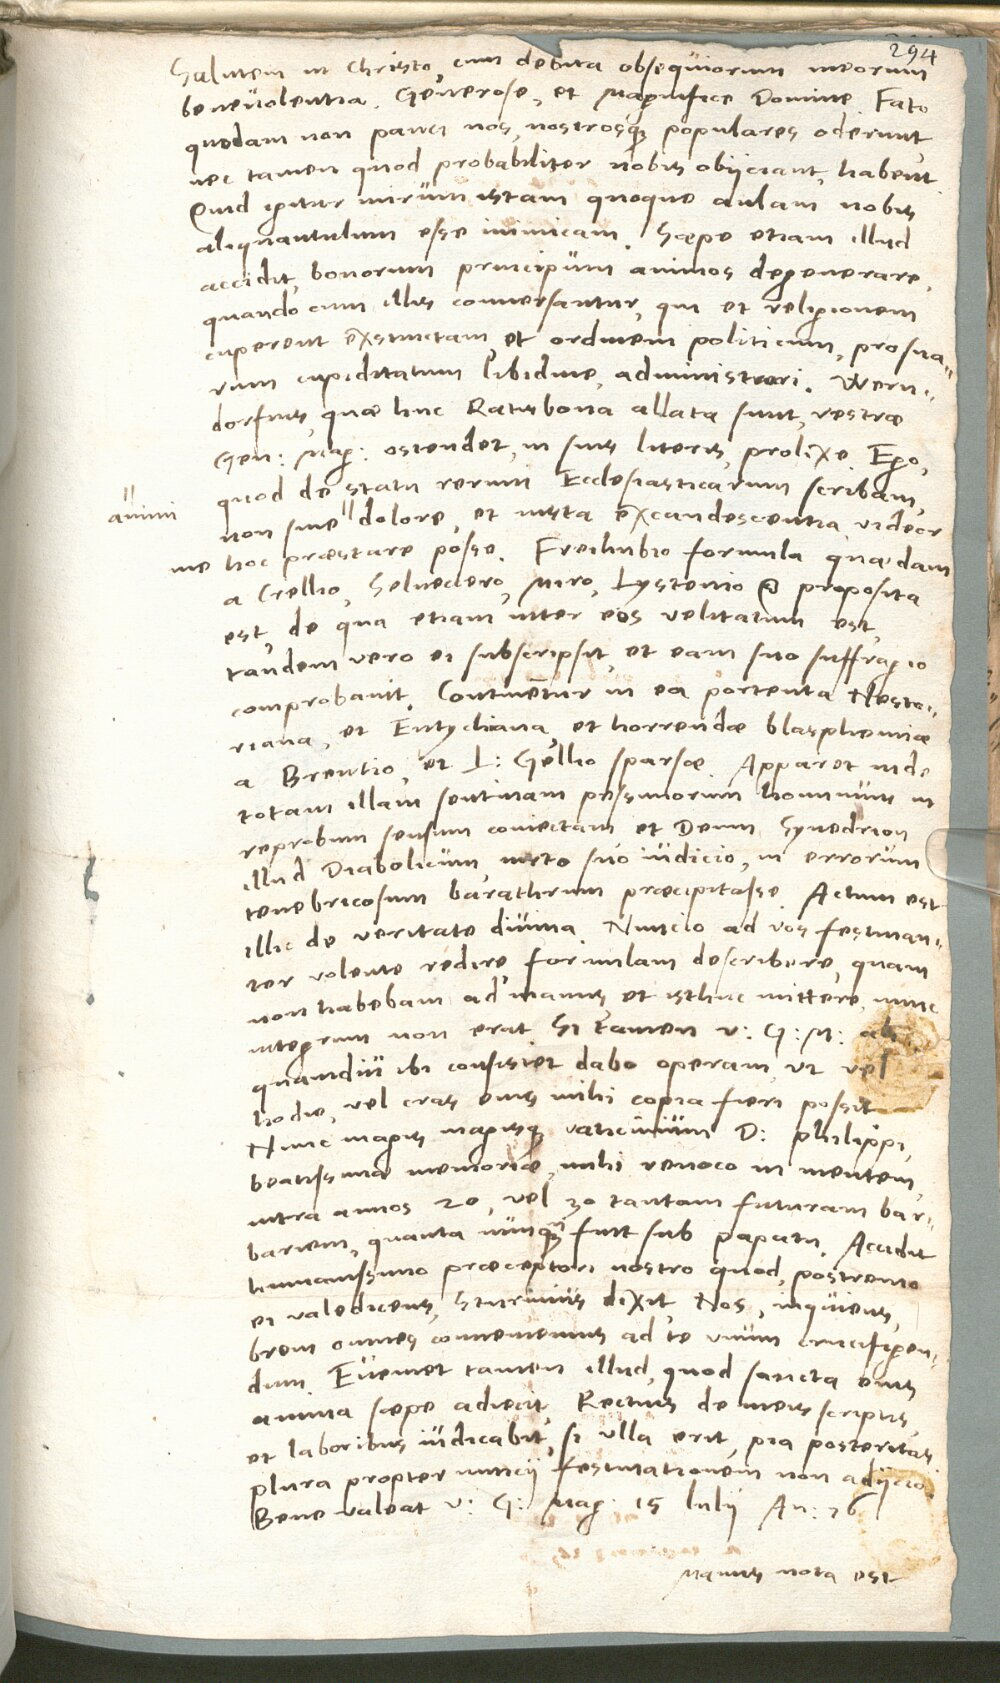 294
Salutem in Christo, cum debita obsequiorum meorum
benevolentia. Generose, et Magnifice Domine. Fato
quodam non pauci nos, nostrosq₃ populares oderunt,
nec tamen quod probabiliter nobis obijciant, habent.
Quid igitur mirum istam quoque aulam nobis
aliquantulum esse inimicam. Sæpe etiam illud
accidit, bonorum principum animos degenerare,
quando cum illis conversantur, qui et religionem
cuperent exstinctam, et ordinem politicum, pro sua
rum cupiditatum libidine, administrari. Wern=
dorfius, quæ huc Ratisbona allata sunt, vestræ
Gen: Mag: ostendet, in suis literis, prolixe. Ego,
quod de statu rerum Ecclesiasticarum scribam,
animi
non sine " dolore, et iusta excandescentia, videor
me hoc præstare posse. Freihubio formula quædam
a Crellio, Selneccero, Miro, Lystenio proposita
est, de qua etiam inter eos velitatum est,
tandem vero ei subscripsit, et eam suo suffragio
comprobavit. Continentur in ea portenta Nesto=
riana, et Eutychiana, et horrendæ blasphemiæ
a Brentio, et sparsæ. Apparet inde
totam illam sentinam pessimorum hominum in
reprobum sensum coniectam et Deum Synedrion
illud Diabolicum, iusto suo iudicio, in errorum
tenebricosum barathrum præcipitasse. Actum est
illic de veritate divina. Nuncio ad vos festinan=
ter volente redire, formulam describere, quam
non habebam ad manus et isthuc mittere, nunc
integrum non erat. Si tamen v: G: M:
quamdiu ibi consistet dabo operam, ut vel
hodie, vel cras eius mihi copia fieri possit.
Nunc magis magisq₃ vaticinium D: Philippi,
beatissimæ memoriæ, mihi revoco in mentem,
intra annos 20, vel 30 tantam futuram bar=
bariem, quanta nunq₃ fuit sub papatu. Accidit
humanissimo præceptori nostro quod, postremo
ei valedicens, Sturmius dixit, Nos, inquiens,
brevi omnes conveniemus ad te unum crucifigen=
dum. Eveniet tamen illud, quod sancta eius
anima sæpe adiecit, Rectius de meis scriptis,
et laboribus iudicabit, si ulla erit, pia posteritas.
plura propter nuncij festinationem non adijcio.
Bene valeat v: G: Mag: 15 Iulij An: 76
Manus nota est